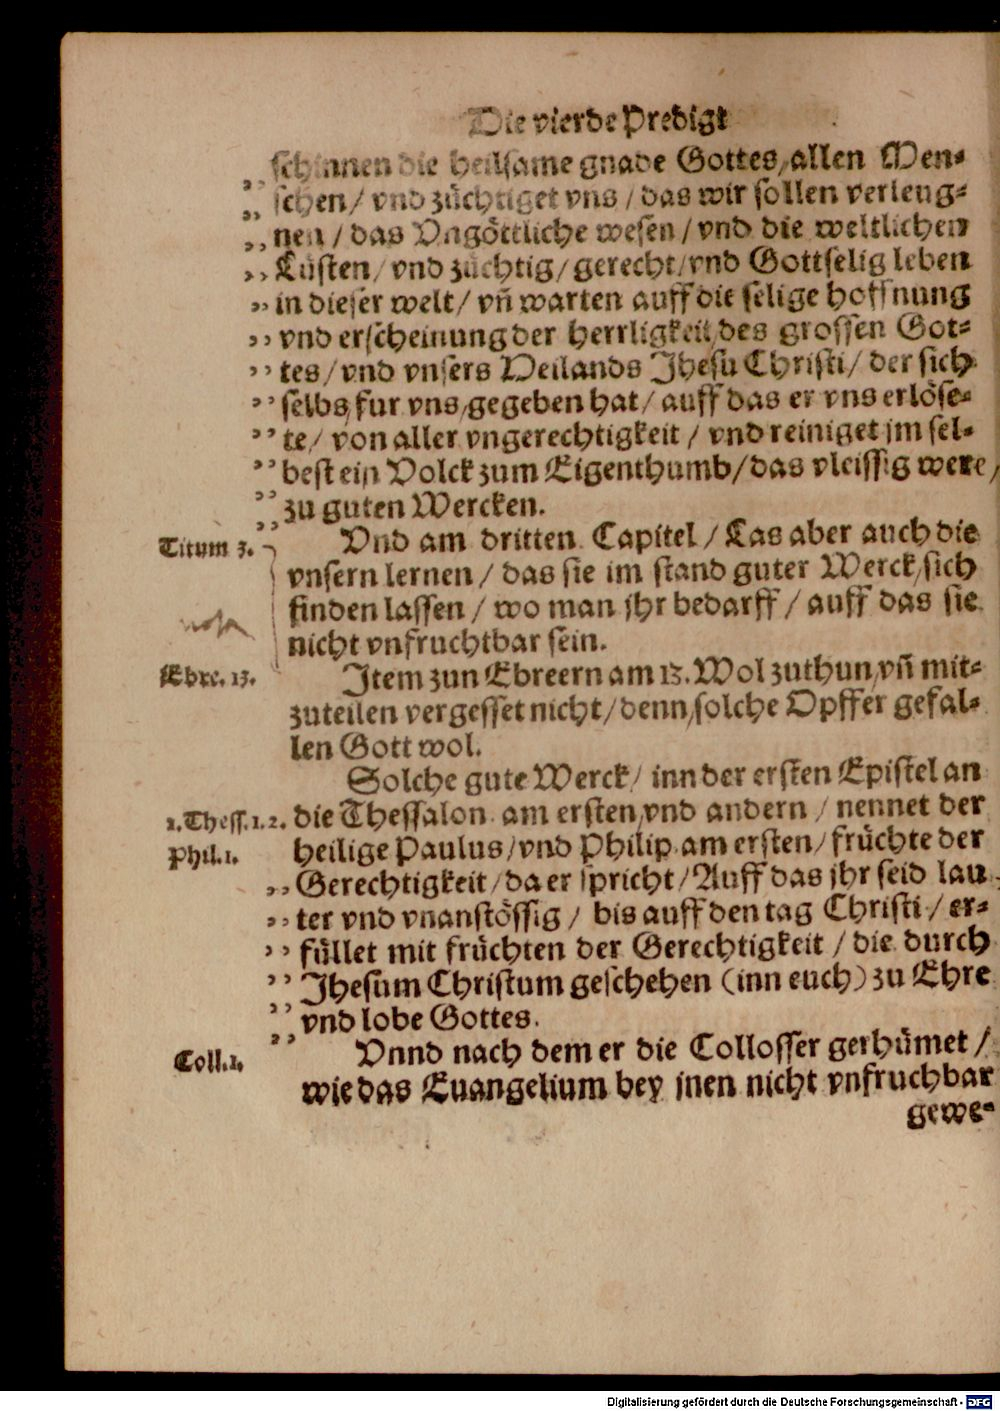 Die vierde Predigt
schinnen die heilsame gnade Gottes/allen Men-
,, schen/ vnd züchtiget vns / das wir sollen verleug-
,, nen / das Vngöttliche wesen / vnd die weltlichen
,, Lüsten/ vnd züchtig/ gerecht/ vnd Gottselig leben
,, in dieser welt/ vñ warten auff die selige hoffnung
,, vnd erscheinung der herrligkeit/des grossen Got-
,, tes/ vnd vnsers Heilands Jhesu Christi/ der sich
,, selbs/ fur vns/gegeben hat/ auff das er vns erlöse-
,, te/ von aller vngerechtigkeit / vnd reiniget jm sel-
,, best ein Volck zum Eigenthumb/das vleissig were/
,, zu guten Wercken.
Titum 3. Vnd am dritten Capitel / Las aber auch die
vnsern lernen / das sie im stand guter Werck/sich
finden lassen / wo man jhr bedarff / auff das sie
nota
nicht vnfruchtbar sein.
Ebre. 13. Jtem zun Ebreern am 13. Wol zuthun/vñ mit-
zuteilen vergesset nicht/denn/solche Opffer gefal-
len Gott wol.
Solche gute Werck/ inn der ersten Epistel an
1.Thess.1.2. die Thessalon. am ersten/vnd andern / nennet der
Phil.1. heilige Paulus/vnd Philip. am ersten/ früchte der
,, Gerechtigkeit/da er spricht/Auff das jhr seid lau-
,, ter vnd vnanstössig / bis auff den tag Christi / er-
,, füllet mit früchten der Gerechtigkeit / die durch
,, Jhesum Christum geschehen (inn euch) zu Ehre
,, vnd lobe Gottes.
Coll.1. Vnnd nach dem er die Collosser gerhümet /
wie das Euangelium bey jnen nicht vnfruchbar
gewe-
Digitalisierung gefördert durch die Deutsche Forschungsgemeinschaft - DFG